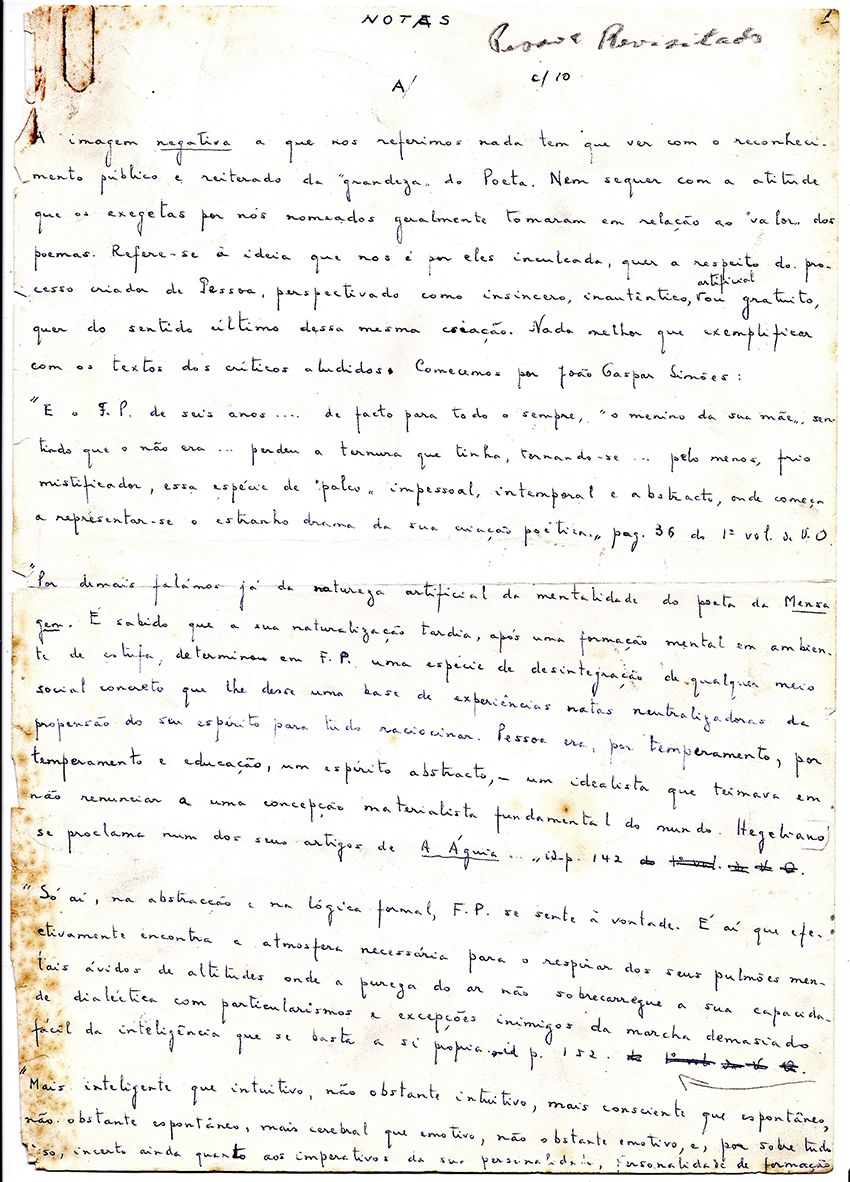 NOTAS
1
Pessoa Revisitado
A/
c/10
A imagem negativa a que nos referimos nada tem que ver com o reconheci-
mento público e reiterado da "grandeza" do Poeta. Nem sequer com a atitude
que os exegetas por nós nomeados geralmente tomaram em relação ao "valor" dos
poemas. Refere-se à ideia que nos é por eles inculcada, quer a respeito do pro-
artificial
cesso criador de Pessoa, perspectivado como insincero, inautêntico, ou gratuito,
quer do sentido último dessa mesma criação. Nada melhor que exemplificar
com os textos dos críticos aludidos. Comecemos por João Gaspar Simões:
"E o F.P. de seis anos .... de facto para todo o sempre, "o menino da sua mãe", sen-
tindo que o não era ... perdeu a ternura que tinha, tornando-se ... pelo menos, frio
mistificador, essa espécie de "palco" impessoal, intemporal e abstracto, onde começa
a representar-se o estranho drama da sua criação poética." pag. 36 do 1º vol. de V.O.
"Por demais falámos já da natureza artificial da mentalidade do poeta da Mensa
gem. É sabido que a sua naturalização tardia, após uma formação mental em ambien-
te de estufa, determinou em F.P. uma espécie de desintegração de qualquer meio
social concreto que lhe desse uma base de experiências natas neutralizadoras da
propensão do seu espírito para tudo raciocinar. Pessoa era, por temperamento, por
temperamento e educação, um espírito abstracto, – um idealista que teimava em
não renunciar a uma concepção materialista fundamental do mundo. Hegeliano
se proclama num dos seus artigos de A Águia ... " id. p. 142 do 1º vol. de V. O.
"Só aí, na abstracção e na lógica formal, F.P. se sente à vontade. É aí que efe-
ctivamente encontra a atmosfera necessária para o respirar dos seus pulmões men-
tais ávidos de altitudes onde a pureza do ar não sobrecarregue a sua capacida-
de dialéctica com particularismos e excepções inimigos da marcha demasiado
fácil da inteligência que se basta a si propria." id p. 152. do 1º vol de V. O.
"Mais inteligente que intuitivo, não obstante intuitivo, mais consciente que espontâneo,
não obstante espontâneo, mais cerebral que emotivo, não obstante emotivo, e, por sobre tudo
isso, incerto ainda quanto aos imperativos da sua personalidade, personalidade de formação